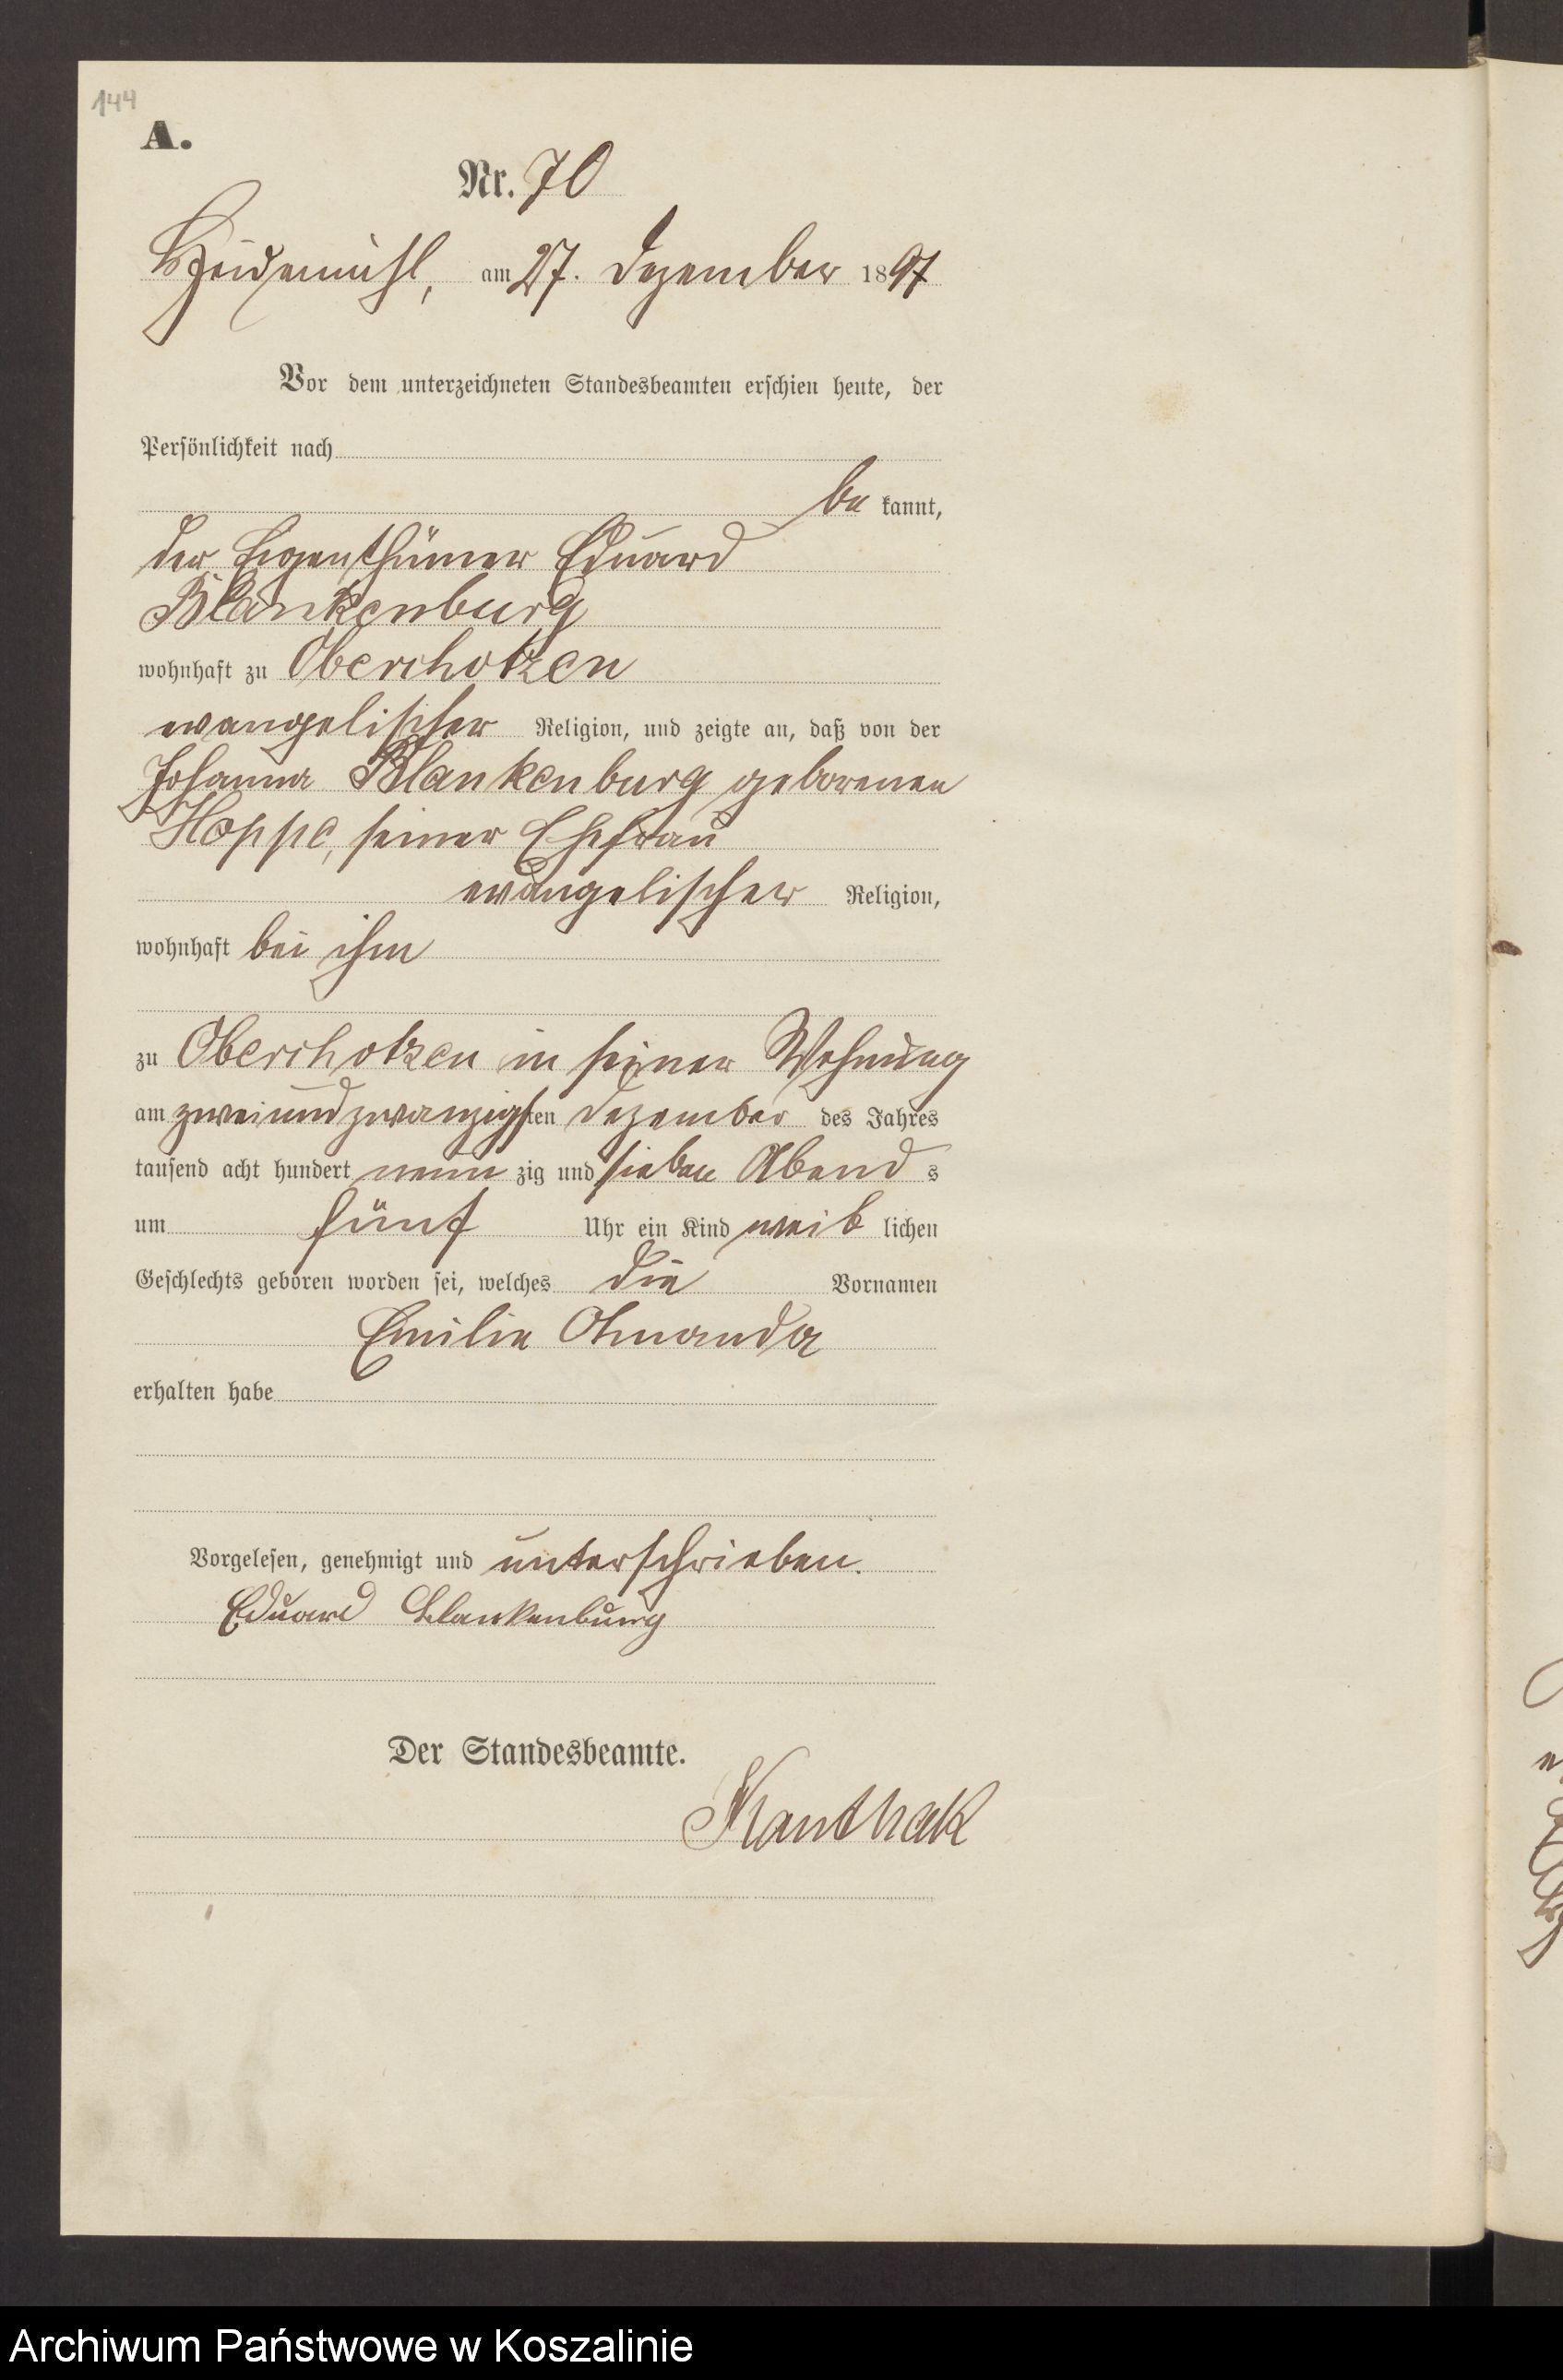 144
A.
Nr. 70
Heidemühl, am 27. Dezember 1897
Vor dem unterzeichneten Standesbeamten erschien heute, der
Persönlichkeit nach
be kannt,
der Eigenthümer Eduard
Blankenburg
wohnhaft zu Oberchotzen
evangelischer Religion, und zeigte an, daß von der
Johanna Blankenburg geborenen
Hoppe, seiner Ehefrau
evangelischer Religion,
wohnhaft bei ihm
zu Oberchotzen in seiner Wohnung
am zweiundzwanzigsten Dezember des Jahres
tausend acht hundert neun zig und sieben Abend s
um fünf Uhr ein Kind weib lichen
Geschlechts geboren worden sei, welches die Vornamen
Emilie Amanda
erhalten habe
Vorgelesen, genehmigt und unterschrieben.
Eduard Blankenburg
Der Standesbeamte.
Kanthak
Archiwum Państwowe w Koszalinie